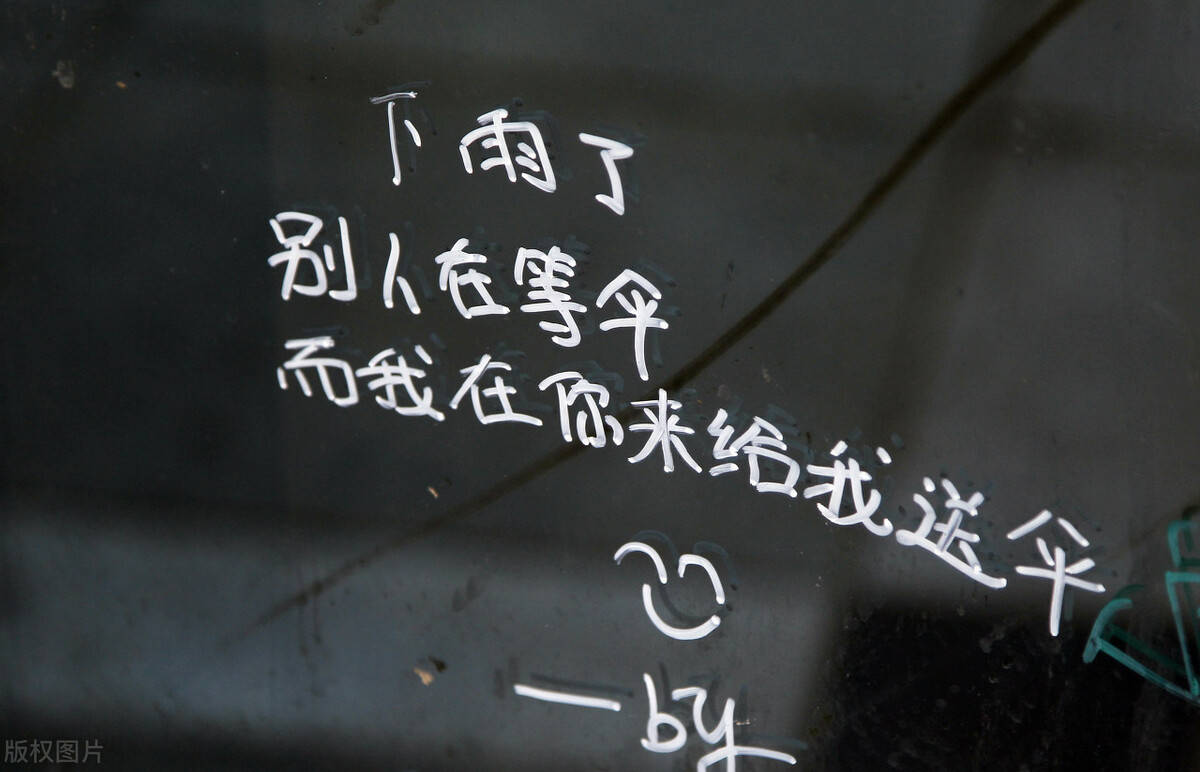 下雨了
别人在等伞
而我在你来给我送伞
—by
版权图片